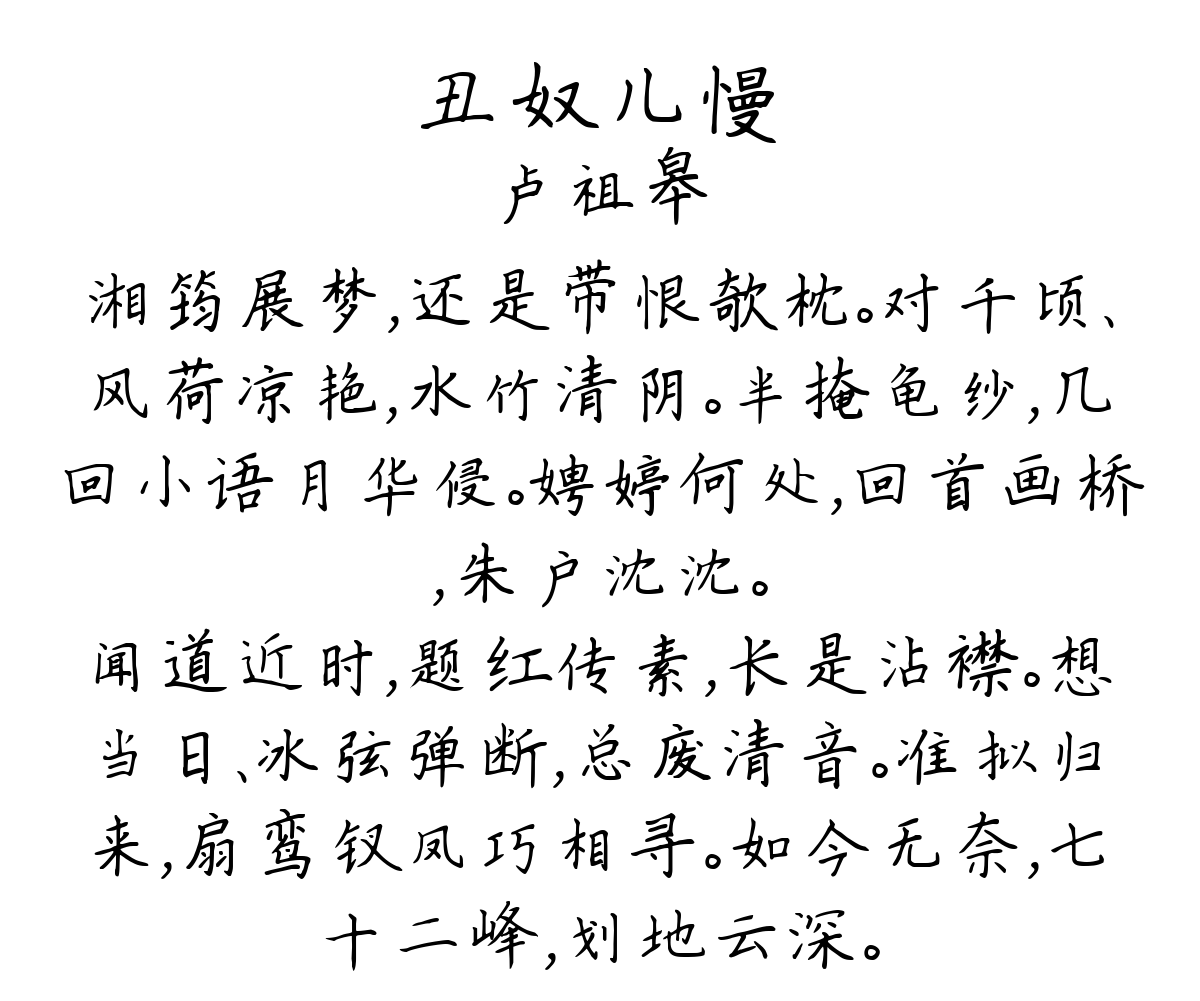 丑奴儿慢
卢祖皋
湘筠展梦,还是带恨欹枕。对千顷、
风荷凉艳,水竹清阴。半掩龟纱,几
回小语月华侵。娉婷何处,回首画桥
,朱户沈沈。
闻道近时,题红传素,长是沾襟。想
当日、冰弦弹断,总废清音。准拟归
来,扇鸾钗凤巧相寻。如今无奈,七
十二峰,划地云深。